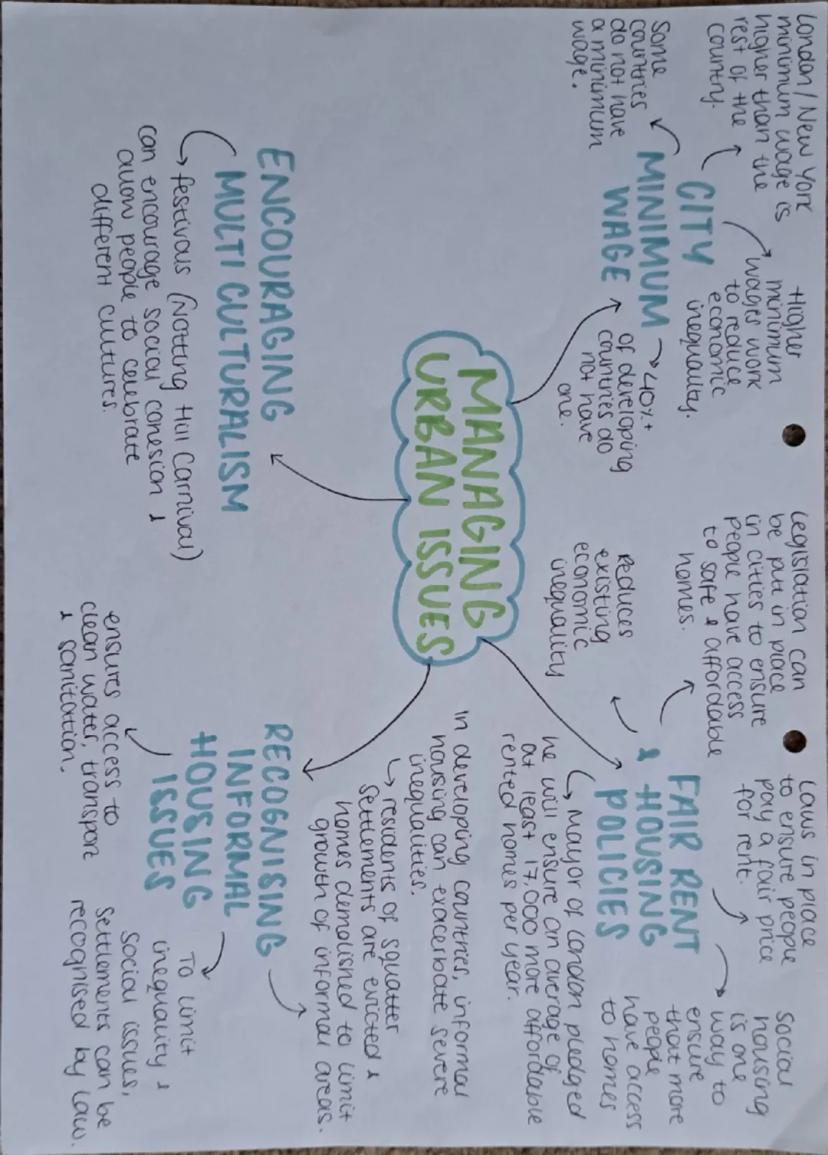 MANAGING
URBAN ISSUES
CITY
MINIMUM
WAGE
London/New York
minimum wage is
higher than the
rest of the
country.
Higher
minimum
wages work
to reduce
economic
inequality.
some
countries
do not have
a minimum
wage.
40%+
of developing
countries do
not have
one.
FAIR RENT
& HOUSING
POLICIES
Legislation can
be put in place
in cities to ensure
people have access
to safe & affordable
homes.
Laws in place
to ensure people
pay a fair price
for rent.
social
housing
is one
way to
ensure
that more
people
have access
to homes
reduces
existing
economic
inequality
Mayor of London pledged
he will ensure an average of
at least 17,000 more affordable
rented homes per year.
ENCOURAGING
MULTI CULTURALISM
festivous (Notting Hill Carnival)
can encourage social cohesion &
allow people to celebrate
different cultures.
RECOGNISING
INFORMAL
HOUSING
ISSUES
In developing countries, informal
housing can exacerbate severe
inequalities.
residents of squatter
settlements are evicted &
homes demolished to limit
growth of informal areas.
ensures access to
clean water, transport
& sanitation.
To limit
inequality &
social issues,
settlements can be
recognised by law.